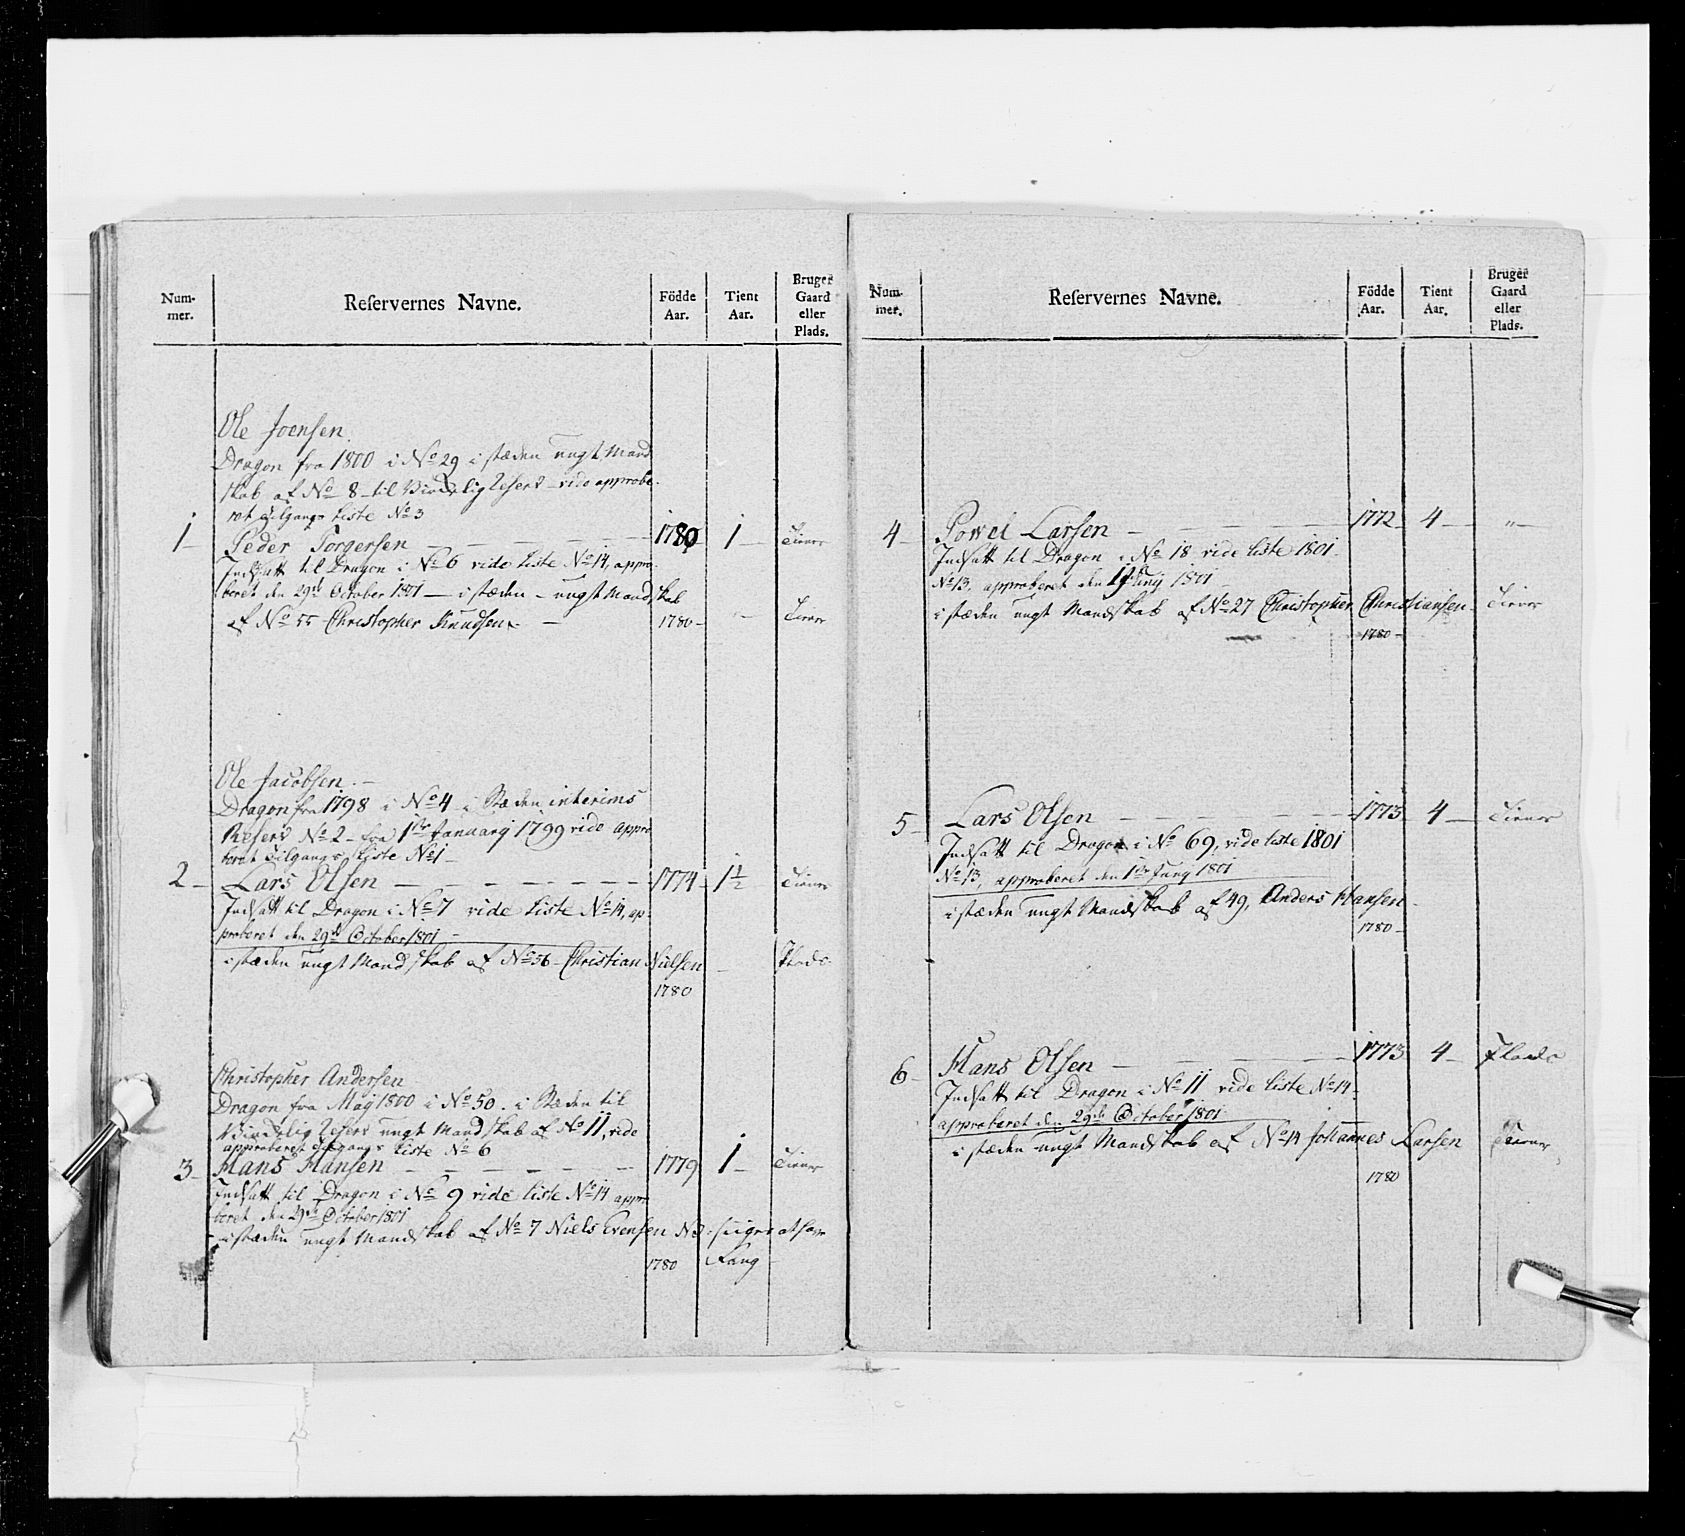 Num-
mer.
Reservernes Navne.
Födde
Aar.
Tient
Aar.
Bruger
Gaard
eller
Plads.
Ole Joensen
Dragon fra 1800 i No 29 i stæden ungt Mand
skab af No 8 til Reserv vide approbe-
ret Tilgangs Liste No 3
1 Peder Torgersen 1780 1 Tiener
Indsatt til Dragon i No 6 vide Liste No 14, appro-
beret den 29de October 1801 i stæden ungt Mandskab
af No 55 Christopher Knudsen 1780 Tiener
Ole Jacobsen
Dragon fra 1798 i No 4 i Stæden interims
Reserv No 2 fra 1ste Januarj 1799 vide appro
beret Tilgangs Liste No 1
2 Lars Olsen 1774 1½ Tiener
Indsatt til Dragon i No 7 vide Liste No 14, ap-
proberet den 29de October 1801
i stæden ungt Mandskab af No 56 Christian Nielsen Plads
1780
Christopher Andersen
Dragon fra Maij 1800 i No 50. i Stæden til
Reserv ungt Mandskab af No 11, vide
approberet Tilgangs Liste No 6
3 Hans Hansen 1779 1 Tiener
Indsatt til Dragon i No 9 vide Liste No 14 appro
beret den 29de October 1801
i stæden ungt Mandskab af No 7 Niels Evensen
1780
Num-
mer.
Reservernes Navne.
Födde
Aar.
Tient
Aar.
Bruger
Gaard
eller
Plads.
4 Powel Larsen 1772 4 "
Indsatt til Dragon i No 18 vide Liste 1801
No 13, approberet den Junij 1801
i stæden ungt Mandskab af No 27 Christopher Christiansen Tiener
1780
5 Lars Olsen 1773 4 Tiener
Indsatt til Dragon i No 69, vide Liste 1801
No 13, approberet den 1ste Junij 1801
i stæden ungt Mandskab af 49, Anders Hansen
1780
6 Hans Olsen 1773 4 Plads
Indsatt til Dragon i No 11 vide Liste No 14
approberet den 29de October 1801
i stæden ungt Mandskab af No 14 Johannes Larsen Tiener
1780